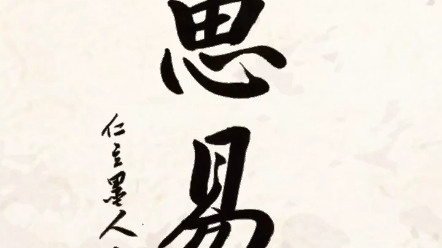 思易
仁立墨人